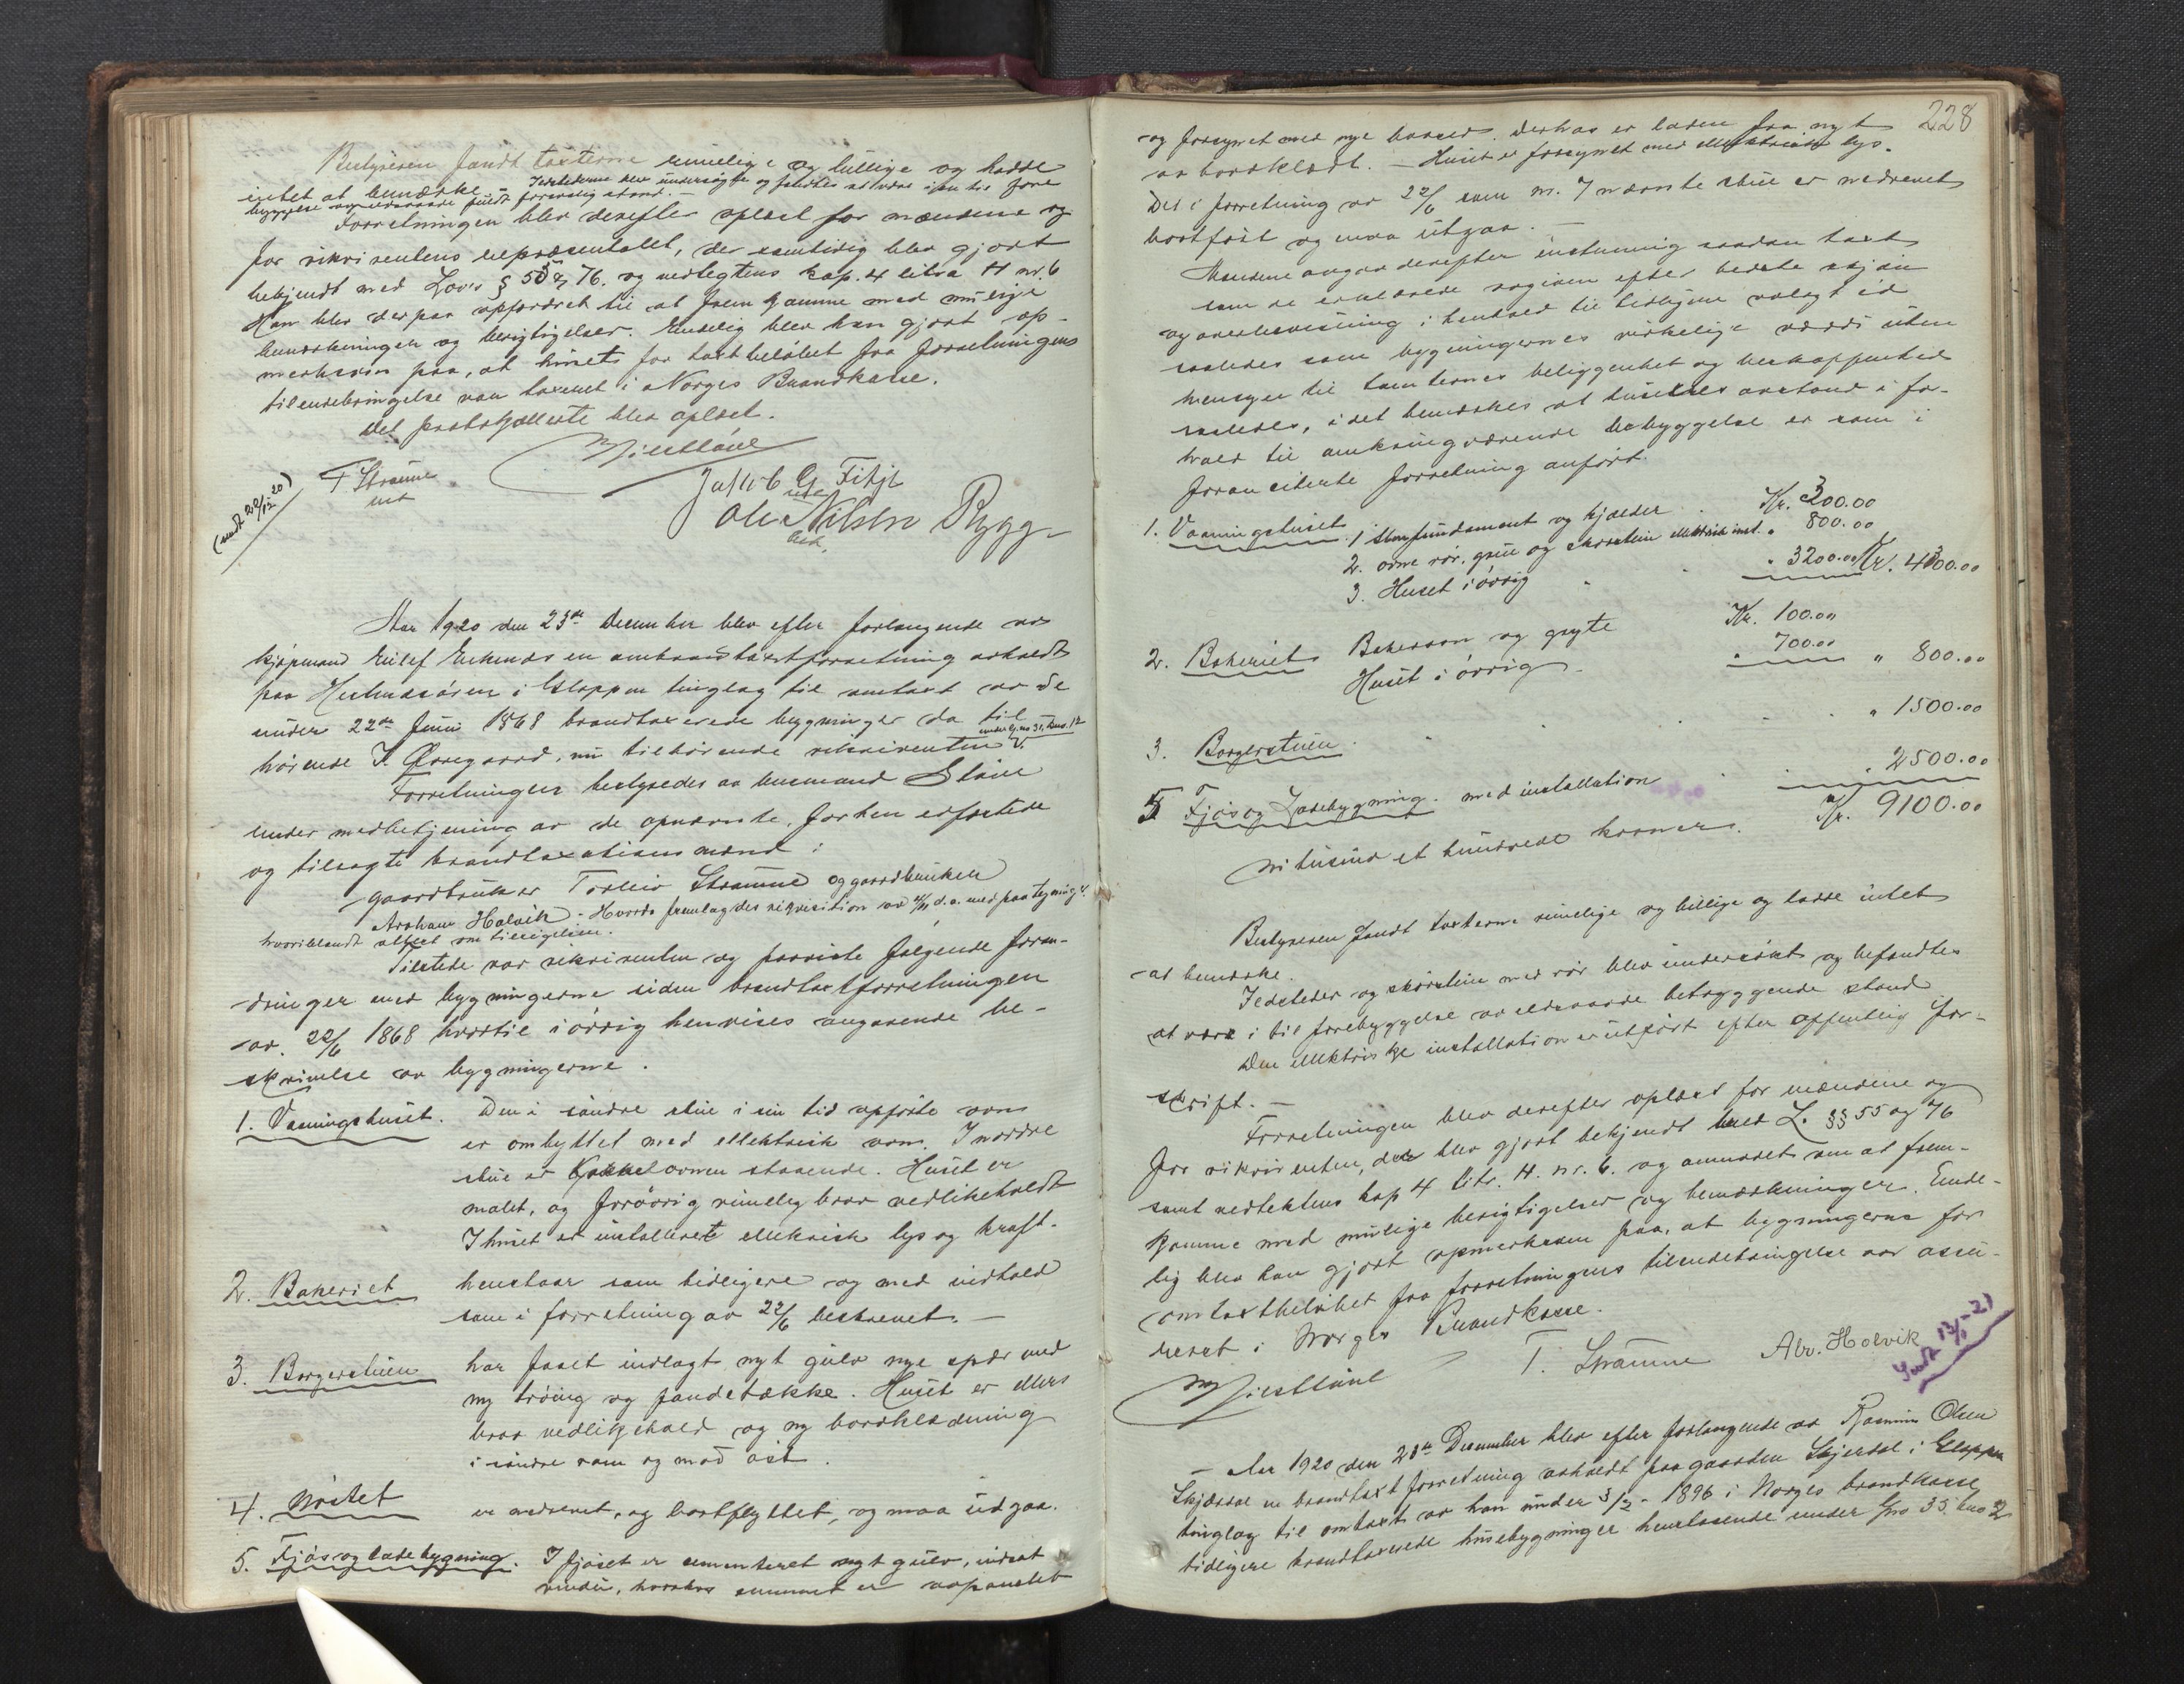 Bestyreren fandt taxterne rimelige og billige og hadde
intet at bemærke. - Ildstederne blev undersøgte og fandtes at være i en til fore
byggelse mot ildsvaade fuldt forsvarlig stand. -
Forretningen blev derefter oplæst for mændene og
for rikvirentens repræsentatet, der samtidig blev gjort
bekjendt med Lovs § 55 og 76. og vedtegtens kap. 4 litra H nr. 6
Han blev derpaa opfordret til at fremkomme med mulige
bemerkninger og berigtigelser. Endelig blev han gjort op-
merksom paa, at huset for taxtbeløbet fra forretningens
tilendebringelse var taxeret i Norges Brandkasse.
Det protokollerte blev oplæst.
Jakob G. Fitje
T Strømme
Ole Nilsen Rygg
(sendt 28/12-20)
Aar 1920 den 23de December blev efter forlangende av
kjøpmand Eilef Eikenæs en ombrandstaxtforretning avholdt
paa Hestenesøren i Gloppen tinglag til omtaxt av de
under 22de Juni 1868 brandtaxerede bygninger da til-
under G.no 31, Bno. 12
hørende J. Ørregaard, nu tilhørende rikvirenten V.
Forretningen bestyredes av lensmand Støve
under medbetjening av de opnævnte, forhen edfæstede
og tilsagte brandtaxationsmænd:
gaardbruker Torleiv Strømme og gaardbruker
Abraham Holvik - Hvorda fremlagdes rikvisition av d.a. med paategning
hvoriblandt attest om tilsigelsen.
Tilstede var rikvirenten og paaviste følgende foran-
dringer med bygningerne siden brandtaxtforretningen
av 22/6 1868 hvortil iøvrig henvises angaaende be-
skrivelse av bygningerne.
1. Vaaningshuset. Den i søndre stue i sin tid opførte ovn
er ombyttet med ellektrisk ovn. I nordre
stue er kakkelovnen staaende. Huset er
malet, og forøvrig rimelig brav vedlikeholdt
I huset er installeret ellektrisk lys og kraft.
2. Bakeriet henstaar som tidligere og med indhold
som i forretning av 22/6 beskrevet. -
3. Borgerstuen har faaet indlagt nyt gulv nye spær med
ny tröing og fandetække. Huset er ellers
brav vedlikehold og ny bordklædning
i søndre ram og mod øst.
4. Nøstet er nedrevet, og bortflyttet, og maa udgaa.
5. Fjøs og ladebygning. I fjøset er cementeret nyt gulv, indsat
vindu, hvorhos rummet er avpanelet
228
og forsynet med nye baaser. Derhos er laden fra nyt
av bordklædt. - Huset er forsynet med ellektrisk lys.
Det i forretning av 22/6 som nr. 7 nævnte stue er nedrevet
bortført og maa utgaa. -
Mændene avgav derefter enstemmig saadan taxt
som de erklærede avgiven efter bedste skjøn
og overbevisning i henhold til tidligere avlagt ed
saaledes som bygningernes virkelige værdi uten
hensyn til tomternes beliggenhet og beskaffenhed
saaledes, idet bemerkes at husenes avstand i for-
hold til omkringværende bebyggelse er som i
foranciterte forretning anført.
1. Vaaningshuset 1 Stenfundament og kjælder . Kr. 300.00
2. ovne rør, grue og skorstein ellektrisk inst. " 800.00
3. Huset i øvrig " 3200.00 Kr. 4300.00
2. Bakeriet Bakerovn og gryte Kr. 100.00
Huset i øvrig " 700.00 " 800.00
3. Borgerstuen . " 1500.00
5 Fjøs og Ladebygning. med installation . 2500.00
Kr. 9100.00
ni tusind et hundrede kroner.
Bestyreren fandt taxterne rimelige og billige og hadde intet
at bemerke.
Ildsteder og skorstein med rør blev undersøkt og befandtes
at være i til forebyggelse av ildsvaade betryggende stand
Den ellektriske installation er utført efter offentlig for-
skrift. -
Forretningen blev derefter oplæst for mændene og
for rikvirenten, der blev gjort bekjendt med L. §§ 55 og 76
samt vedtektens kap 4 litr. H. nr. 6. og anmodet om at frem-
komme med mulige berigtigelser og bemærkninger. Ende-
lig blev han gjort opmerksom paa, at bygningerne for
omtaxtbeløbet fra forretningens tilendebringelse var assu-
reret i Norges Brandkasse.
T. Strømme Abr. Holvik
Sendt 13/1-21
- Aar 1920 den 28de December blev efter forlangende av Rasmus Olsen
Skjærdal en brandtaxtforretning avholdt paa gaarden Skjerdal i Gloppen
tinglag til omtaxt av han under 3/2-1896 i Norges brandkasse
tidligere brandtaxerede husebygninger henstaaende under Gno 35 bno 2